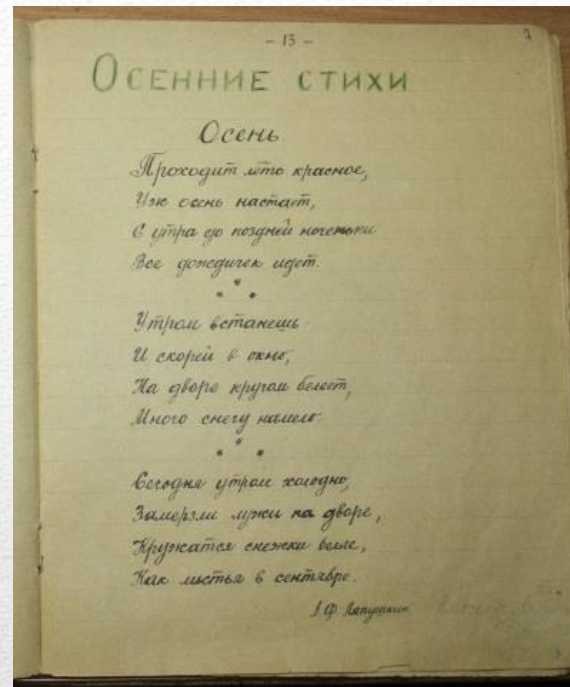 - 13 -
ОСЕННИЕ СТИХИ
Осень.
Проходит лето красное,
Уж осень настаёт,
С утра до поздней ноченьки
Все дождичек идет.
* * *
Утром встанешь
И скорей в окно,
На дворе кругом белеет,
Много снегу намело.
* * *
Сегодня утром холодно,
Замерзли лужи на дворе,
Кружатся снежки белые,
Как листья в сентябре.
Ф. Лапушкин